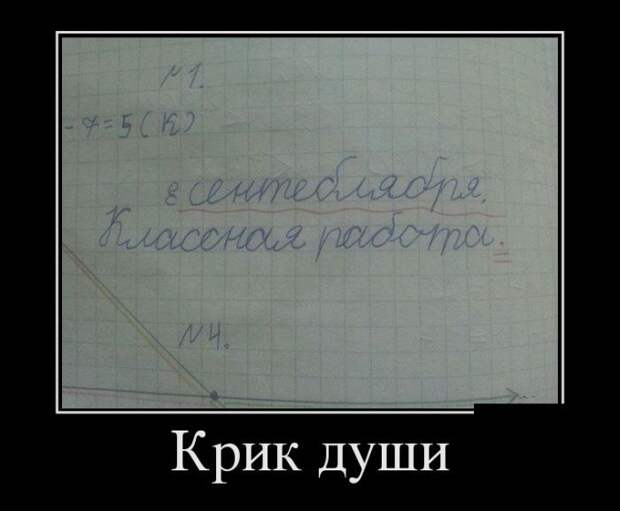 №1.
-7=5(К)
8 сентеблября.
Классная работа.
№4.
Крик души